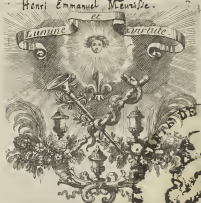 Henri Emmanuel Meurisse.
et
Lumine Virtute